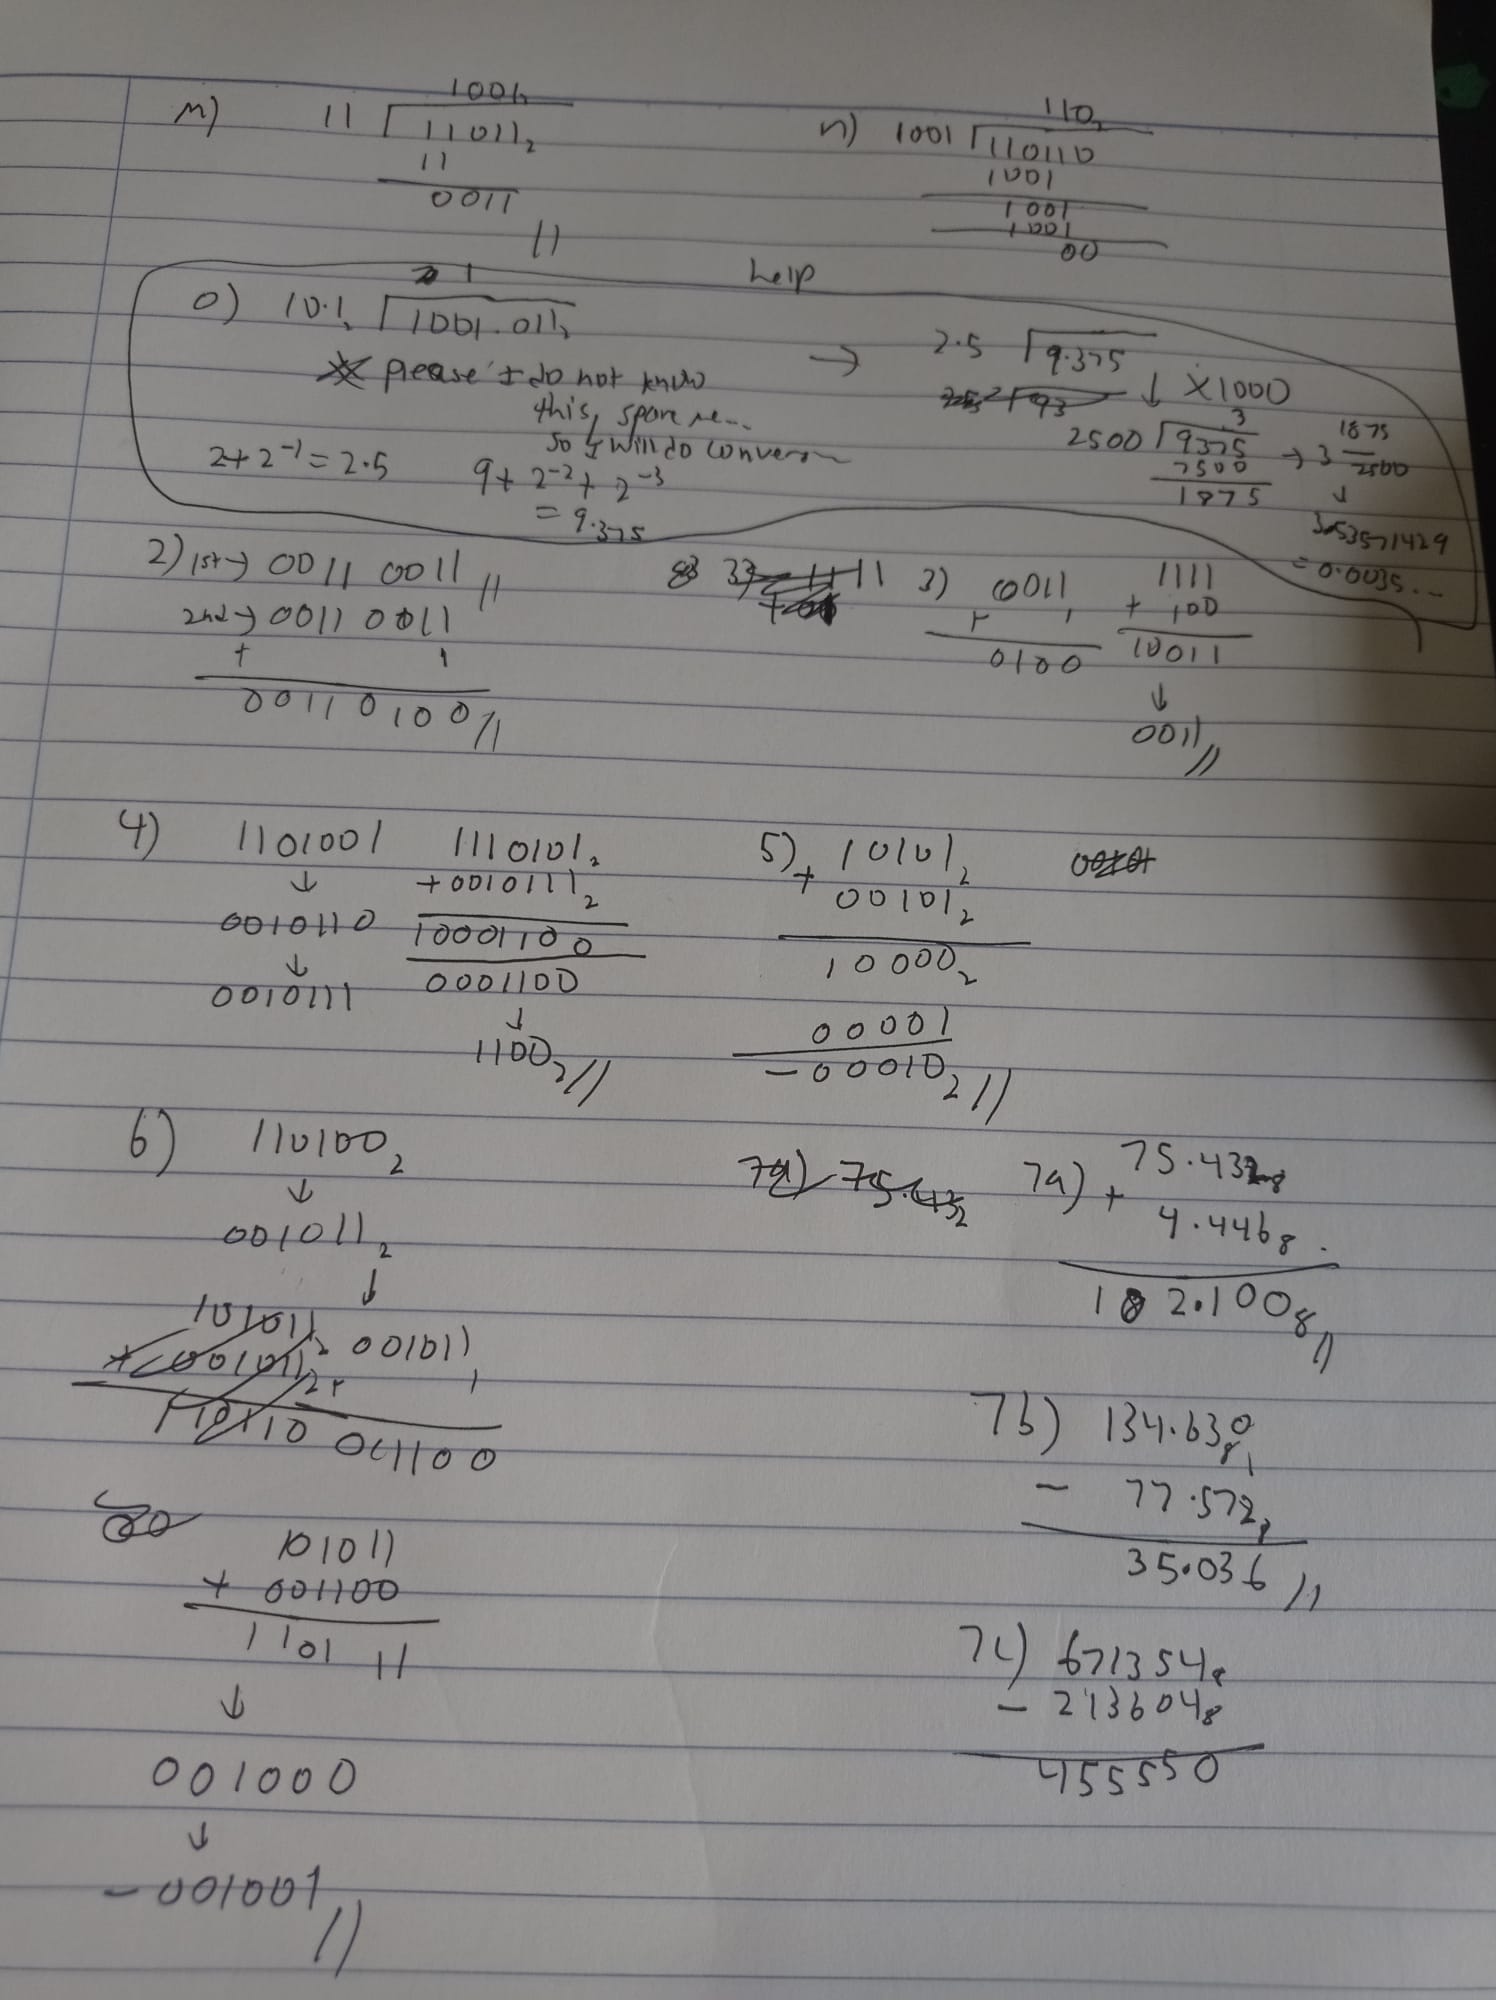 m) 11 11011₂ 1001₂
11
0011
//
n) 1001 110110 110₂
1001
1001
1001
00
help
o) 10.1₂ 1001.011₂ 1
* please I do not know
this, spare me...
so I will do conversion
2+2⁻¹=2.5 9+2⁻²+2⁻³
=9.375
→ 2.5 9.375
↓ ×1000
2500 9375 3 → 3 1875/2500
7500
1875
↓
3.53571429
=0.0035...
2) 1st→ 0011 0011 //
2nd→ 0011 0011
+ 1
00110100 //
3) 0011
+ 1
0100
1111
+ 100
10011
↓
0011 //
4) 1101001
↓
0010110
↓
0010111
1110101₂
+0010111₂
10001100
0001100
↓
1100₂ //
5) 10101₂
+ 00101₂
10000₂
00001
-00010₂ //
6) 110100₂
↓
001011₂
↓
001011
+ 1
001100
101011
+ 001100
1101 11
↓
001000
↓
-001001 //
7a) 75.432₈
+ 4.446₈
102.100₈ //
7b) 134.630₈
- 77.572₈
35.036 //
7c) 671354₈
- 213604₈
455550